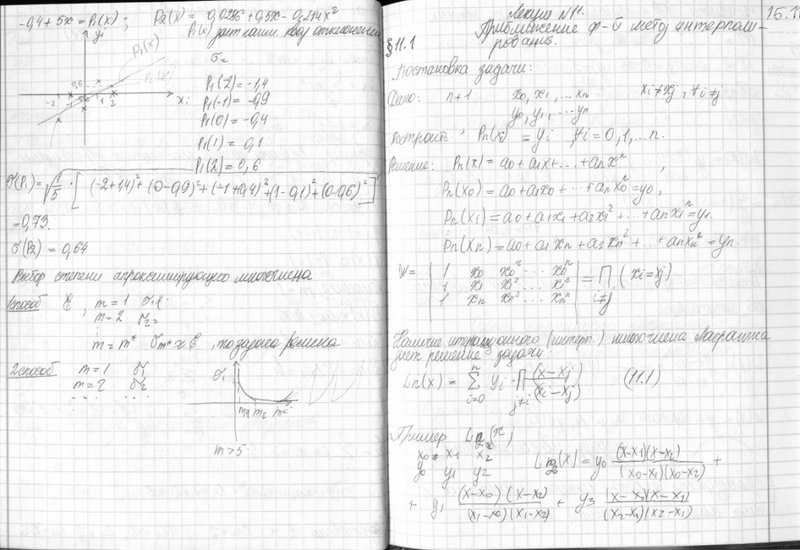 -0,4+5x = P₁(x); P₂(x) = 0,0286 + 0,5x - 0,214x²
P₁(x)
σ₂
y
P₁(x)
P₁(-2) = -1,4
P₁(-1) = -0,9
P₁(0) = -0,4
P₁(1) = 0,1
P₁(2) = 0,6
-2 -1 1 2 x
σ(P₁) = √1/5 · [(-2+1,4)² + (0-0,9)² + (-1+0,4)² + (1-0,1)² + (0-0,6)²]
= 0,73.
σ(P₂) = 0,64
Выбор степени апроксимирующего многочлена
1способ ε, m = 1 σ₁
m = 2 σ₂
m = m* σₘ* ≈ ε, то задача решена
2способ m = 1 σ₁
m = 2 σ₂
.... ....
σ₁
m₁ m₂ m*
m > 5
Лекция №11. 15.11
Приближение ф-й метод интерполи-
рования.
§11.1
Постановка задачи:
Дано: n+1 x₀, x₁, ... xₙ xᵢ ≠ xⱼ, ∀ i ≠ j
y₀, y₁, ... yₙ
Построить, Pₙ(x) = yᵢ, ∀i = 0, 1, ... n.
Решение: Pₙ(x) = a₀ + a₁x + ... + aₙxⁿ,
Pₙ(x₀) = a₀ + a₁x₀ + ... + aₙx₀ⁿ = y₀,
Pₙ(x₁) = a₀ + a₁x₁ + a₂x₁² + ... + aₙx₁ⁿ = y₁.
Pₙ(xₙ) = a₀ + a₁xₙ + a₂xₙ² + ... + aₙxₙⁿ = yₙ.
W = | 1 x₀ x₀² ... x₀ⁿ |
| 1 x₁ x₁² ... x₁ⁿ | = ∏ (xᵢ - xⱼ)
| 1 xₙ xₙ² ... xₙⁿ | i≠j
Наличие (интерп.) многочлена Лагранжа
дает решение задачи:
Lₙ(x) = Σ yᵢ · ∏ (x - xⱼ)/(xᵢ - xⱼ) (11.1)
i=0 n j≠i
Пример L₂(x)
x₀ x₁ x₂
y₀ y₁ y₂ L₂(x) = y₀ (x-x₁)(x-x₂)/(x₀-x₁)(x₀-x₂) +
+ y₁ (x-x₀)(x-x₂)/(x₁-x₀)(x₁-x₂) + y₃ (x-x₃)(x-x₁)/(x₂-x₃)(x₂-x₁)